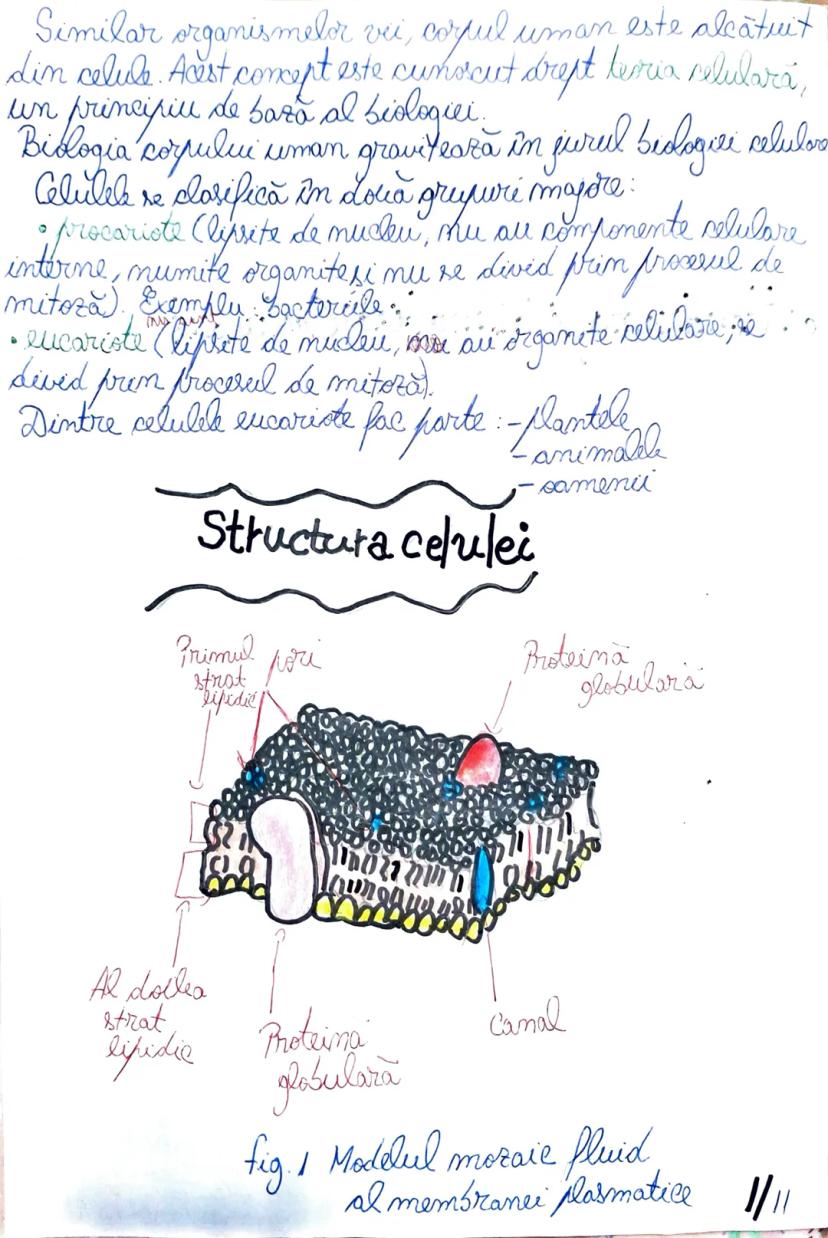 Similar organismelor vii, corpul uman este alcătuit
din celule. Acest concept este cunoscut drept teoria celulară,
un principiu de bază al biologiei.
Biologia corpului uman gravitează în jurul biologiei celulare
Celulele se clasifică în două grupuri majore:
• procariote (lipsite de nucleu, nu au componente celulare
interne, numite organite și nu se divid prin procesul de
mitoză). Exemplu: bacteriile.
• eucariote (lipsite de nucleu, au organite celulare, se
divid prin procesul de mitoză).
Dintre celulele eucariote fac parte: - plantele
- animalele
- oamenii
Structura celulei
Primul
strat
lipidic
pori
Proteină
globulară
Al doilea
strat
lipidic
Proteină
globulară
Canal
fig. 1 Modelul mozaic fluid
al membranei plasmatice
11/11